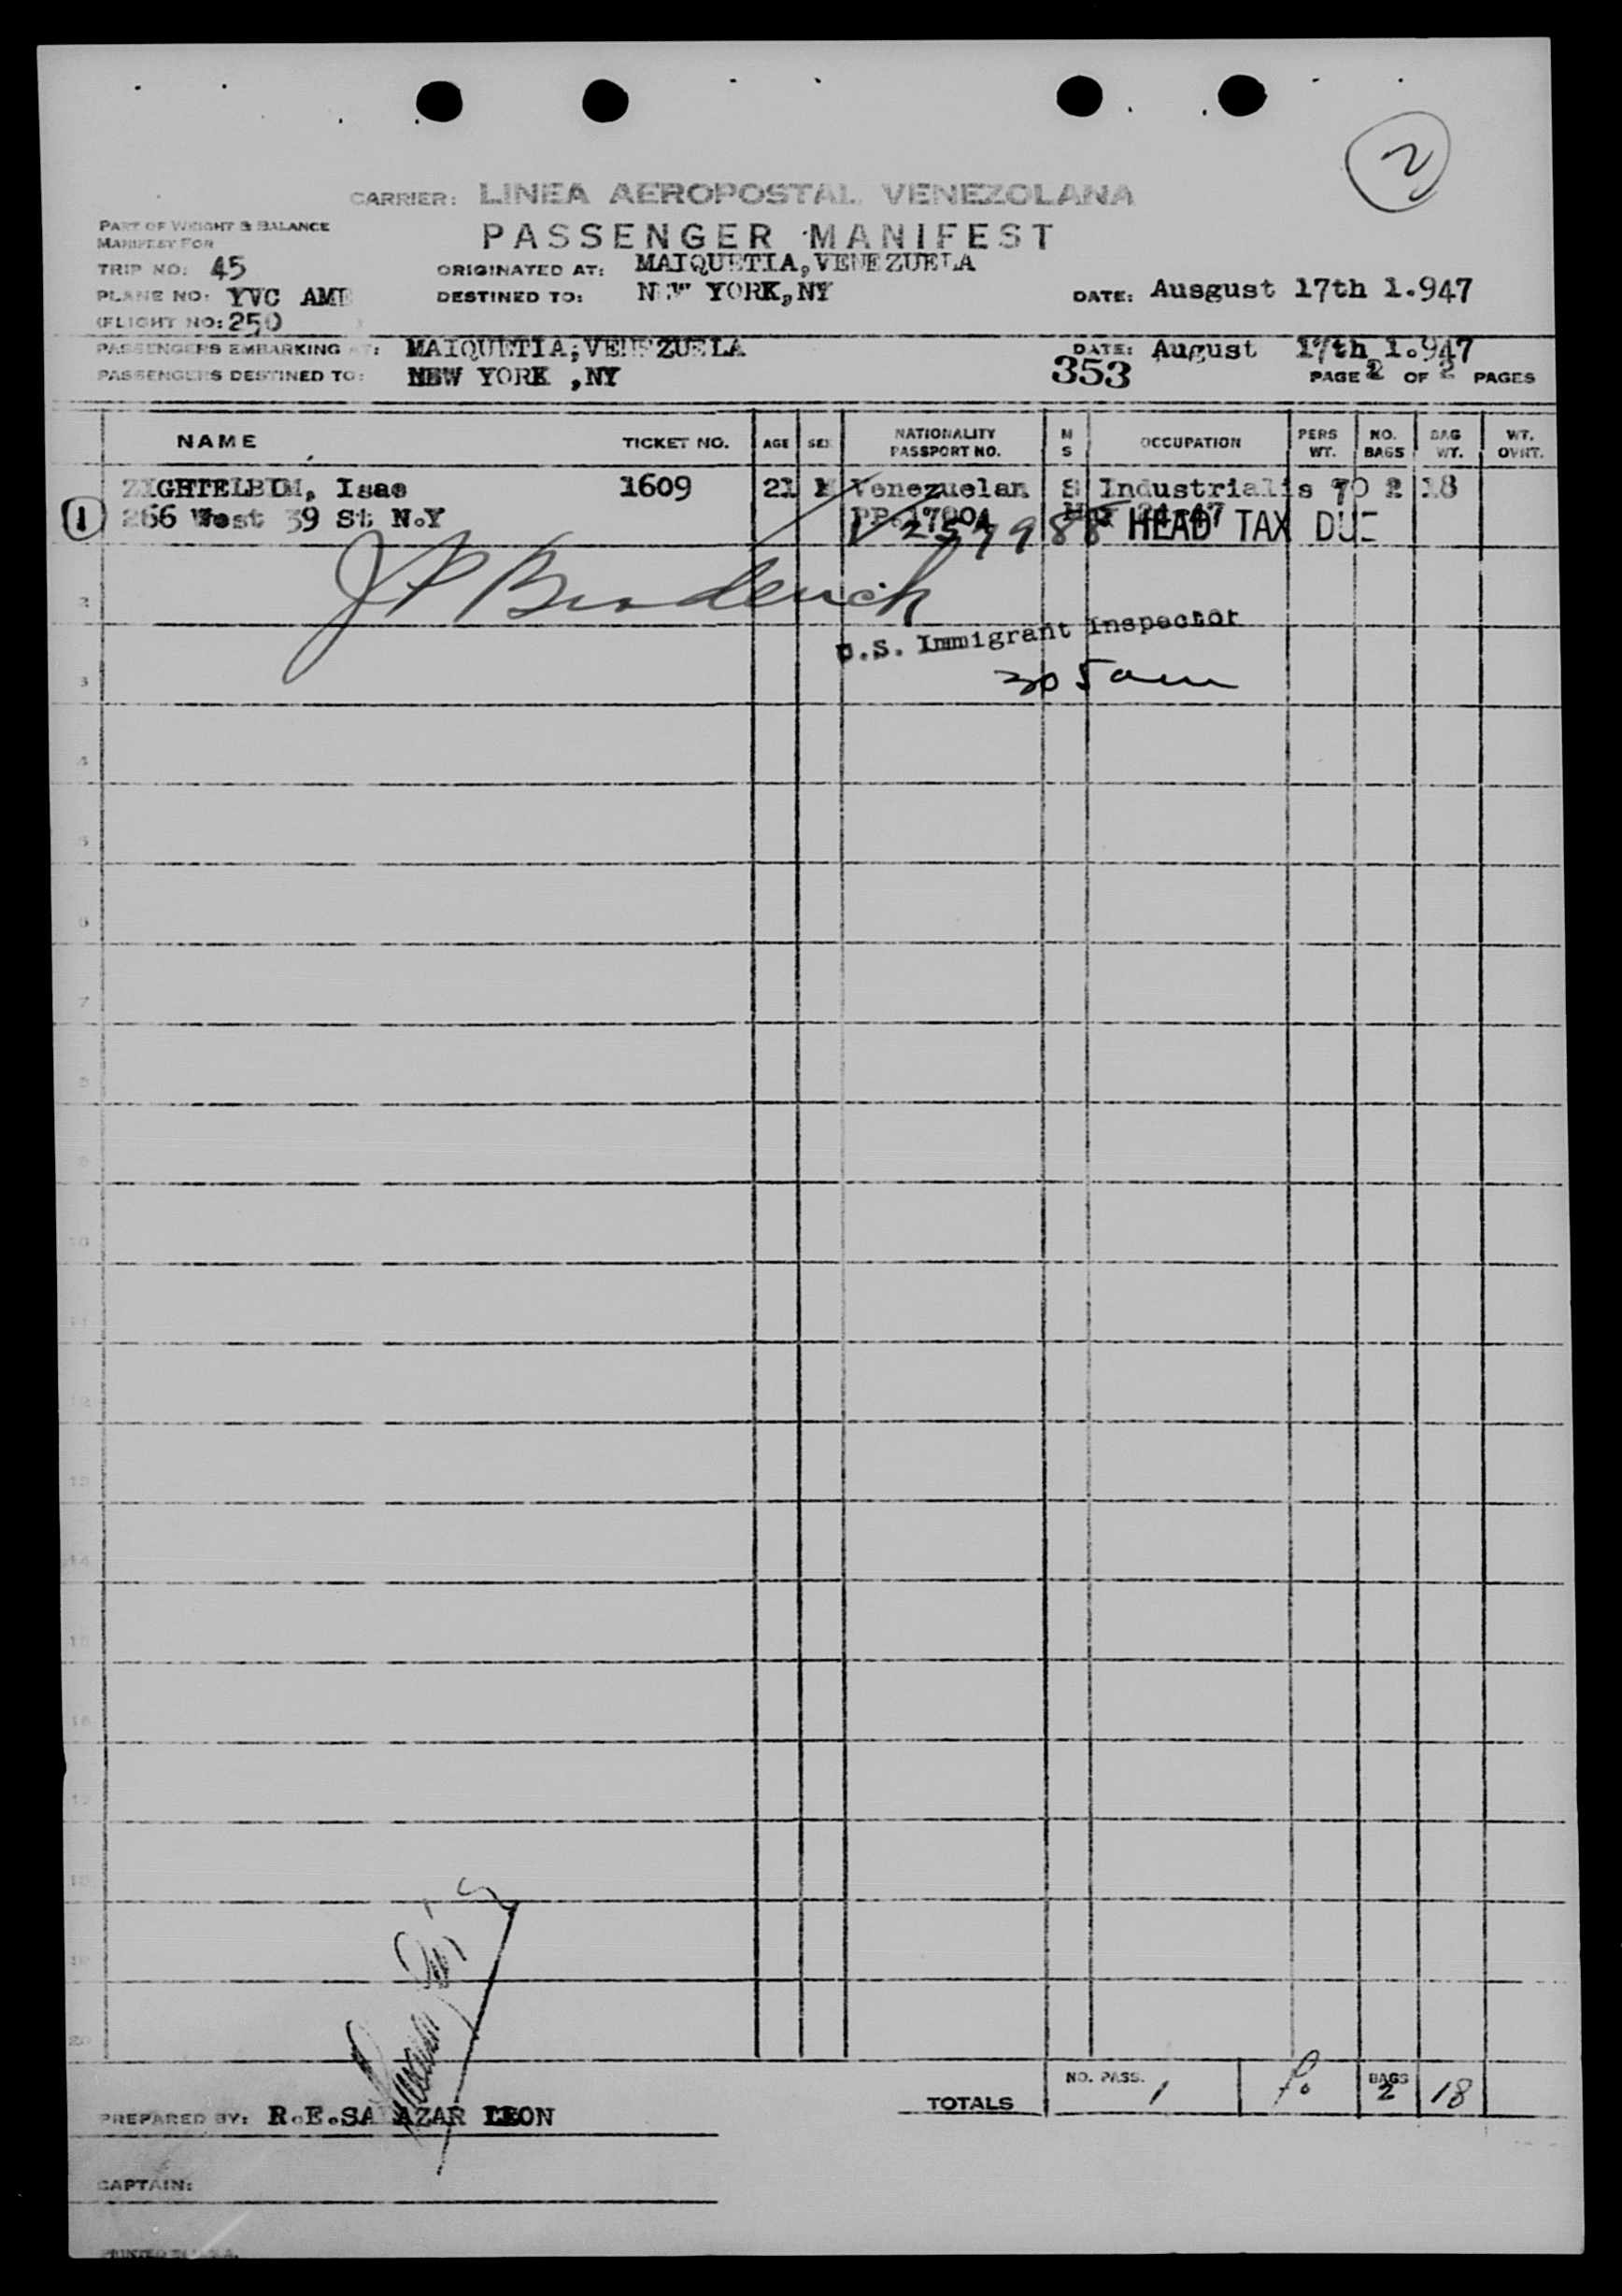 2
CARRIER: LINEA AEROPOSTAL VENEZOLANA
PART OF WEIGHT & BALANCE
MANIFEST FOR
PASSENGER MANIFEST
TRIP NO: 45
ORIGINATED AT: MAIQUETIA, VENEZUELA
PLANE NO: YVC AME
DESTINED TO: NEW YORK, NY
DATE: Ausgust 17th 1.947
(FLIGHT NO: 250
PASSENGERS EMBARKING AT: MAIQUETIA, VENEZUELA
DATE: August 17th 1.947
PASSENGERS DESTINED TO: NEW YORK ,NY
353
PAGE 2 OF 2 PAGES
NAME TICKET NO. AGE SEX NATIONALITY PASSPORT NO. M S OCCUPATION PERS WT. NO. BAGS BAG WT. WT. OVNT.
1 Isac 1609 21 M Venezuelan S Industrialis 70 2 18
266 West 39 St N.Y
HEAD TAX DUE
2
U.S. Immigrant Inspector
3
305 am
4
5
6
7
8
9
10
11
12
13
14
15
16
17
18
19
20
TOTALS NO. PASS. 1 BAGS 2 18
PREPARED BY: R.E.SALAZAR LEON
CAPTAIN: